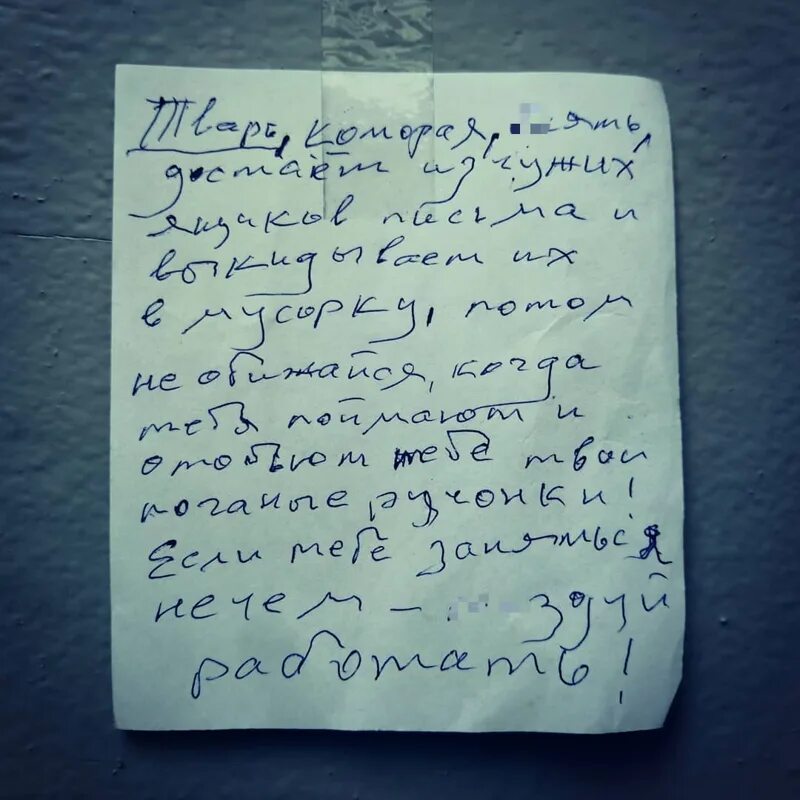 Тварь, которая, ять,
достаёт из чужих
ящиков письма и
выкидывает их
в мусорку, потом
не обижайся, когда
тебя поймают и
отобьют тебе твои
поганые ручонки!
Если тебе заняться
нечем – здуй
работать!